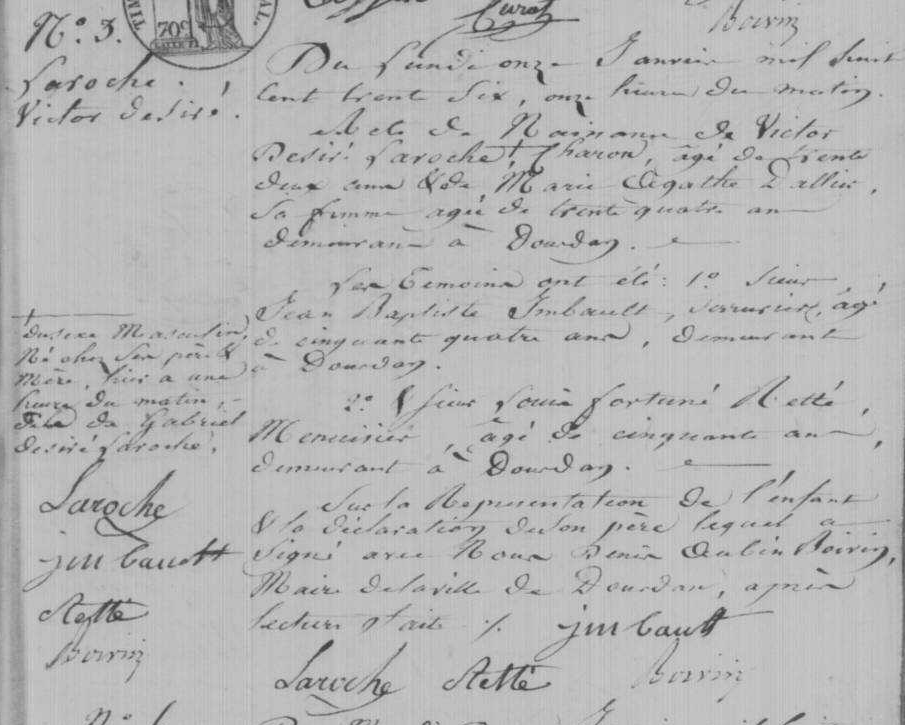 N.º 3.
Laroche.
Victor desiré.
TIM
AL.
70c
Curot
Boivin
Du Lundi onze Janvier mil huit
cent trent six, onze heures du matin.
Acte de Naissance de Victor
Desiré Laroche, † Charon, âgé de trente
deux ans & de Marie Agathe Dallier,
Sa femme agée de trente quatre ans
demeurans à Dourdan.
Les temoins ont été: 1º Sieur
Jean Baptiste Imbault, serrurier, âgé
de cinquante quatre ans, demeurant
à Dourdan.
2º Sieur Louis fortuné Retté,
Menuisier, âgé de cinquante ans,
demeurant à Dourdan.
Sur la Representation de l'enfant
& la déclaration du son père lequel a
signé avec Nous Denis Aubin Boivin,
Maire de la ville de Dourdan, après
lecture faite ./.
†
du sexe Masculin,
Né chez ses père &
Mère, hier a une
heure du matin,
fils de Gabriel
desiré Laroche.
Laroche
jmbault
Retté
Boivin
jmbault
Laroche Retté Boivin